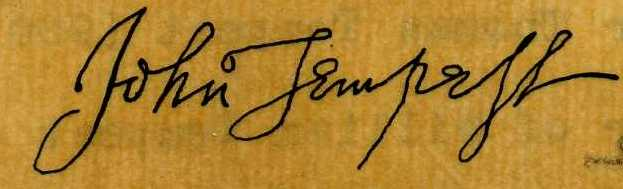 John Tempest